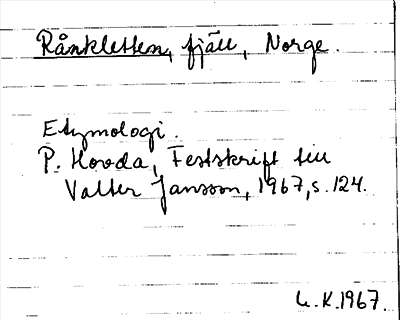 Rånkletten, fjäll, Norge.
Etymologi.
P. Hovda, Festskrift till
Valter Jansson, 1967, s. 124.
L. K. 1967.